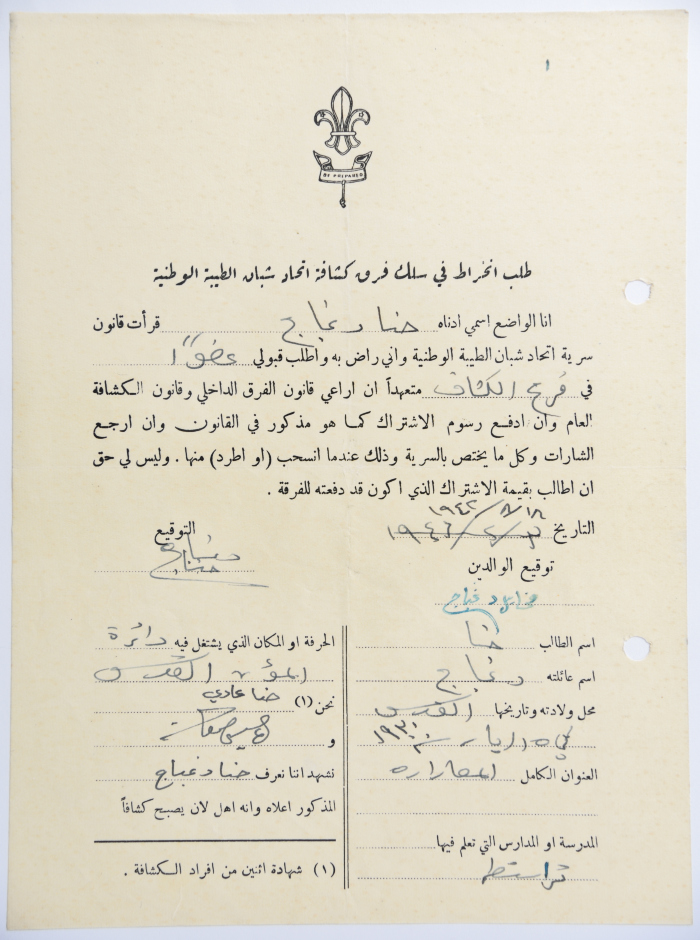 ١
BE PREPARED
طلب انخراط في سلك فرق كشافة اتحاد شبان الطيبة الوطنية
انا الواضع اسمي ادناه حنا دغباج قرأت قانون
سرية اتحاد شبان الطيبة الوطنية واني راض به واطلب قبولي عضوًا
في فرع الكشاف متعهداً ان اراعي قانون الفرق الداخلي وقانون الكشافة
العام وان ادفع رسوم الاشتراك كما هو مذكور في القانون وان ارجع
الشارات وكل ما يختص بالسرية وذلك عندما انسحب (او اطرد) منها . وليس لي حق
ان اطالب بقيمة الاشتراك الذي اكون قد دفعته للفرقة .
١٨/٨/١٩٤٢
التاريخ
التوقيع
دغباج
حنا
توقيع الوالدين
دغباج
اسم الطالب حنا
اسم عائلته دغباج
محل ولادته وتاريخها القدس
في ٥ ايار سنة ١٩٣٠
العنوان الكامل المصراره
المدرسة او المدارس التي تعلم فيها
تراسنطه
الحرفة او المكان الذي يشتغل فيه دائرة
القدس
نحن (١) حنا عادي
و
نشهد اننا نعرف حنا دغباج
المذكور اعلاه وانه اهل لان يصبح كشافاً
(١) شهادة اثنين من افراد الكشافة .